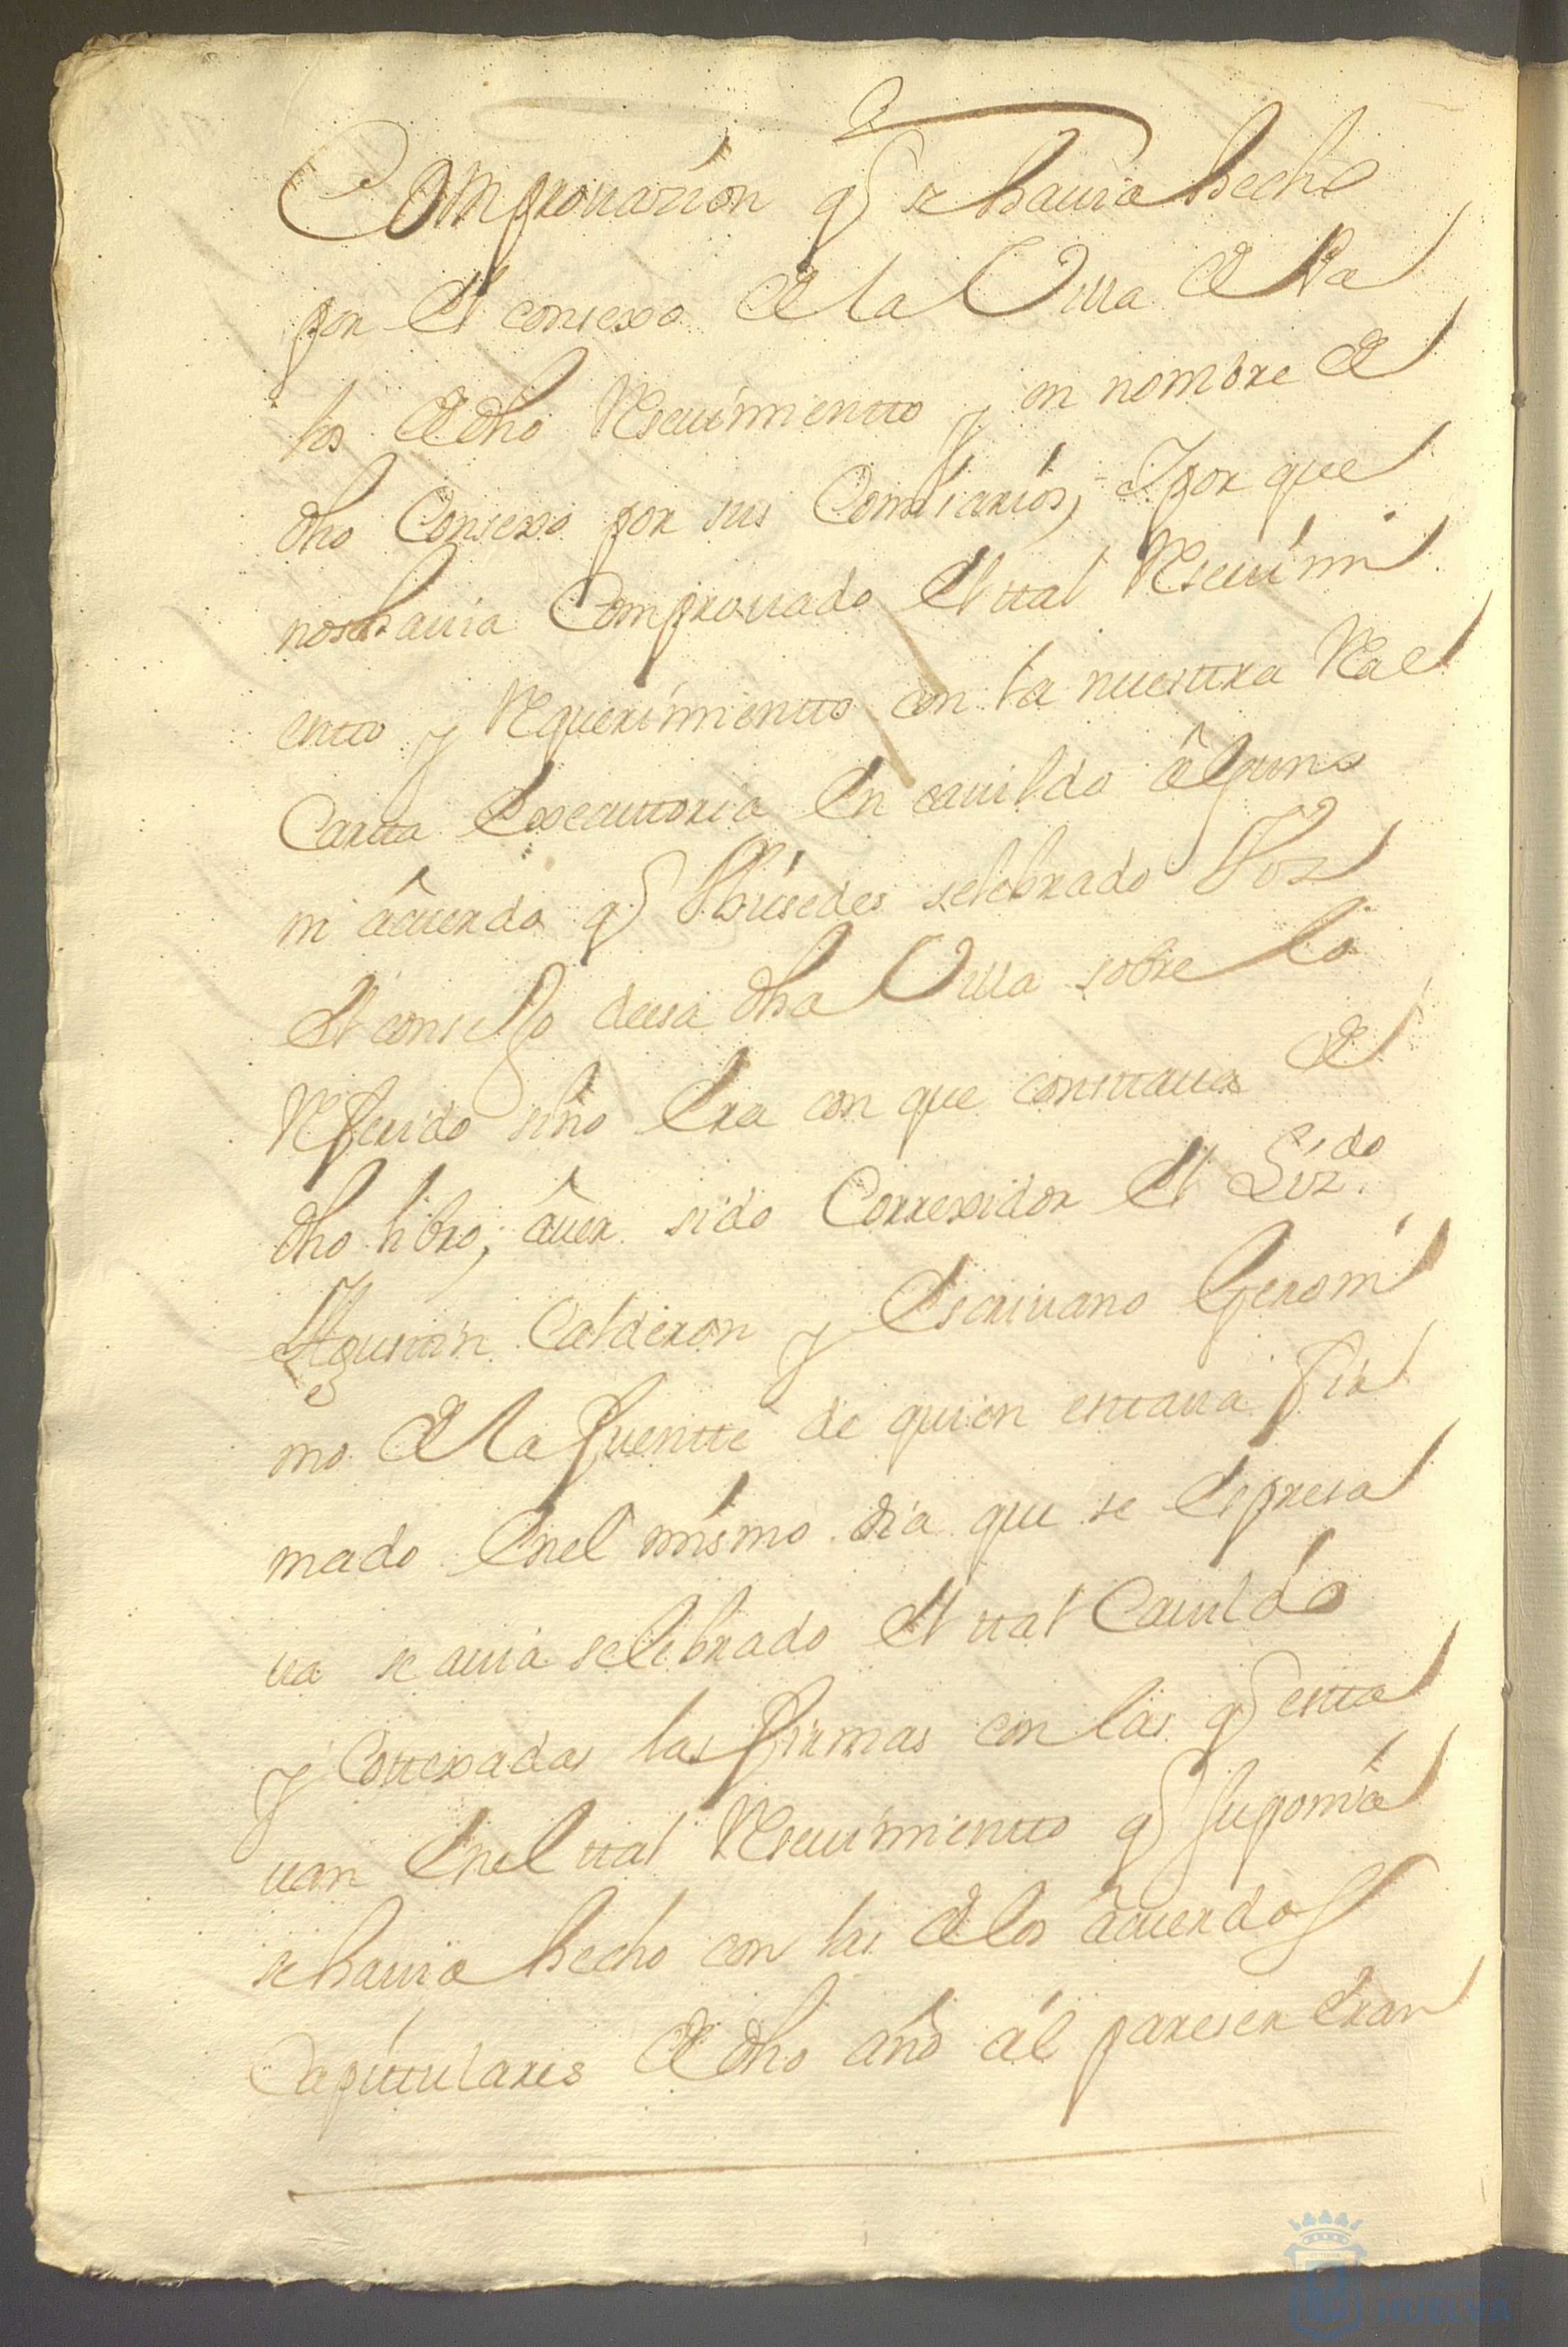 Comprouazion q̃ se hauia hecho
por el consexo de la Villa de Pa
los de dho Reseuimientto y en nombre de
dho Consexo por sus Comisarios, Y por que
nosehauia Comprouado el ttal Reseuimi
entto y Requerimientto con la nuestra Real
Cartta executtoria en cauildo alguno
ni acuerdo q̃ hubisedes selebrado Vos
el consejo de esa dha Villa sobre lo
Referido sino era con que consttaua de
dho libro; auer sido Correxidor el Lizdo.
Agustin Calderon y escriuano Geroni
mo de la fuentte de quien esttaua fir
mado en el mismo dia que se espresa
ua se auia selebrado el ttal Cauildo
y Cottexadas las firmas con las q̃ estta
uan en el ttal Reseuimientto q̃ suponia
se hauia hecho con las de los acuerdos
Capittulares de dho año al pareser eran
HUELVA